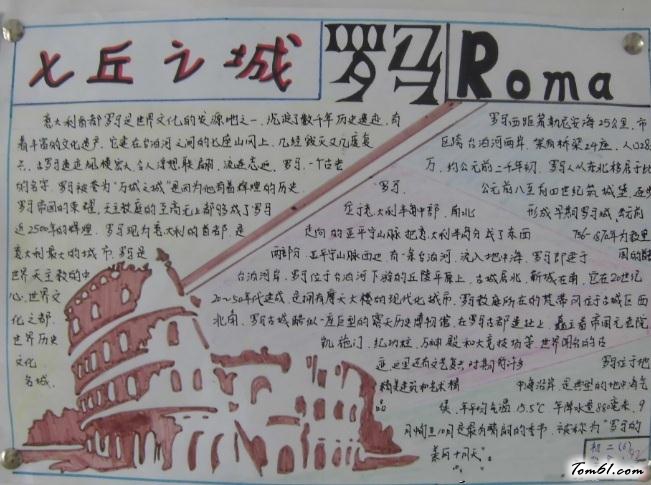 七丘之城 罗马 Roma
意大利首都罗马是世界文化的发源地之一,
罗马西距第勒尼安海25公里,市
着丰富的文化遗产。它建在台伯河之间的七座山冈上,几经毁灭又几度复
区跨台伯河两岸,架有桥梁24座,人口28
罗马,一个古老
万,约公元前二千年初,罗马人从北移居于此
的名字,罗马被誉为"万城之城"是因为他有着辉煌的历史
罗马
公元前八至前四世纪筑城堡
罗马帝国的荣耀,天主教廷的至高无上都够成了罗马
位于意大利半岛中部,南北
形成早期罗马城
近2500年的辉煌。罗马现为意大利的首都,是
走向的亚平宁山脉把意大利半岛分成了东西
意大利最大的城市。罗马是
两部分,亚平宁山脉西边有一条台伯河,流入地中海。罗马即建于
世界天主教的中
台伯河岸。罗马位于台伯河下游的丘陵平原上,古城居北,新城在南,它在20世纪
心,世界文
20~50年代建成,是拥有摩天大楼的现代化城市。罗教庭所在的梵蒂冈位于古城区西
化之都
北角。罗马古城酷似一座巨型的露天历史博物馆。在罗马古都遗址上,矗立着帝国元老院、
世界历史
凯旋门、纪功柱、万神殿和大竞技场等世界闻名的古
文化
迹,这里还有文艺复兴时期的许多
罗马位于地
名城。
精美建筑和艺术精
中海沿岸,是典型的地中海气
品
候,年平均气温15.5℃,年降水量880毫米。
月到10月是最为晴朗的季节,被称为"罗马的
美丽十月天"。
初二(6)
Tom61.com